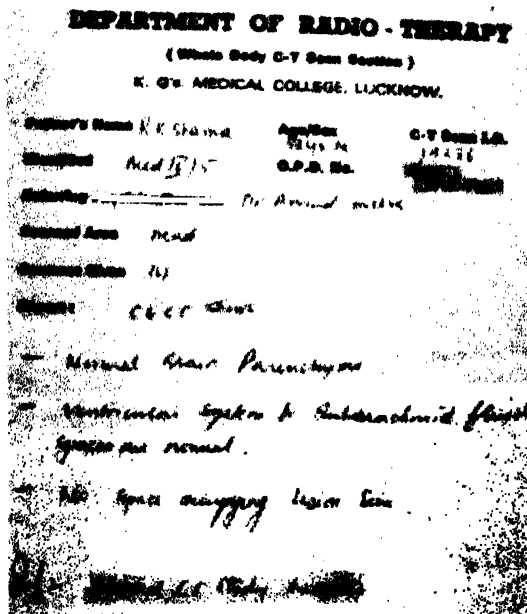 DEPARTMENT OF RADIO - THERAPY
( Whole Body C-T Scan Section )
K. G's. MEDICAL COLLEGE, LUCKNOW.
Patient's Name R K Sharma Age/Sex C-T Scan I.D.
Ward/Bed Med II/15 O.P.D. No.
Dr Arvind
Scanned Area Head
Contrast Given IV
CECT Shows
— Normal Brain Parenchyma
— Ventricular System & Subarachnoid fluid
spaces are normal.
— No Space occupying lesion Seen